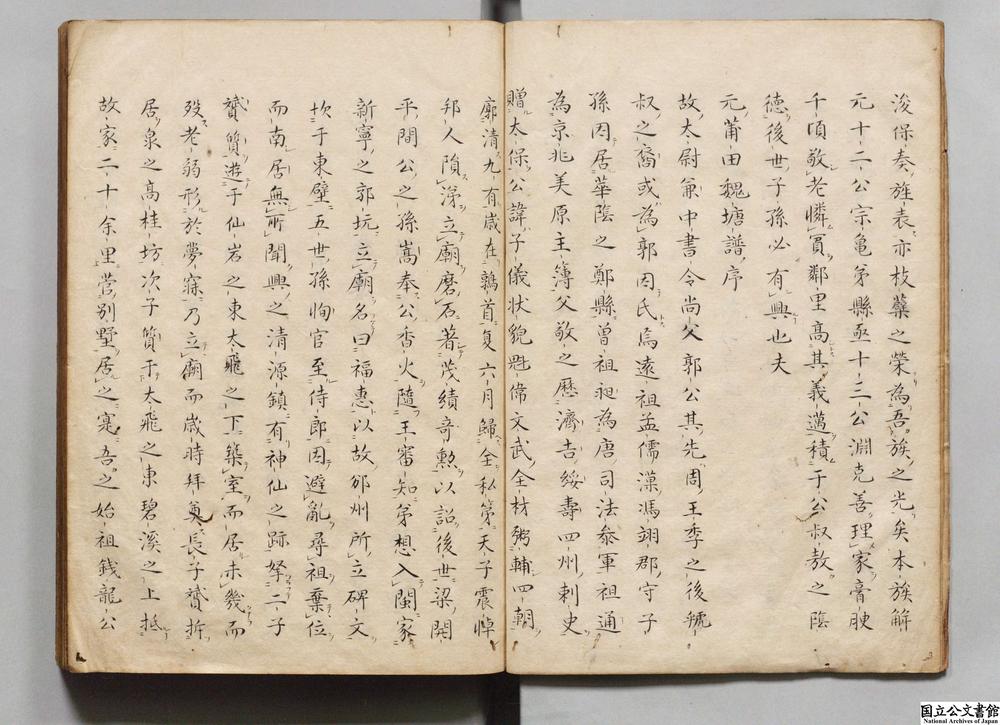 浚保奏旌表亦枝葉之榮為吾族之光矣本族解
元十二公宗亀苐縣丞十三公淵克善理家膏腴
千頃敬老憐貧鄰里高其義邁積于公叔敖之陰
徳後世子孫必有興也夫
元莆田魏塘譜序
故太尉兼中書令尚父郭公其先周王季之後虢
叔之裔或為郭因氏焉遠祖孟儒漢馮翊郡守子
孫因居華陰之鄭縣曽祖昶為唐司法叅軍祖通
為京兆美原主簿父敬之歴濟吉綏壽四州刺史
贈太保公諱子儀状貌魁偉文武全材弼輔四朝
廓清九有歳在鶉首夏六月歸全私第天子震悼
邦人隕涕立廟磨石著茂績奇勲以詔後世梁開
平間公之孫嵩奉公香火隨王審知苐想入閩家
新寧之郭坑立廟名曰福惠以故邠州所立碑文
坎于東壁五世孫恂官至侍郎因避亂尋祖棄位
而南居無所聞興之清源鎮有神仙之跡孥二子
贇質遊于仙岩之東太飛之下築室而居未幾而
歿老弱形於夢寐乃立廟而歳時拜奠長子贇折
居泉之髙桂坊次子質于太飛之東碧溪之上抵
故家二十余里营別墅居之寔吾之始祖銭龍公
国立公文書館
National Archives of Japan